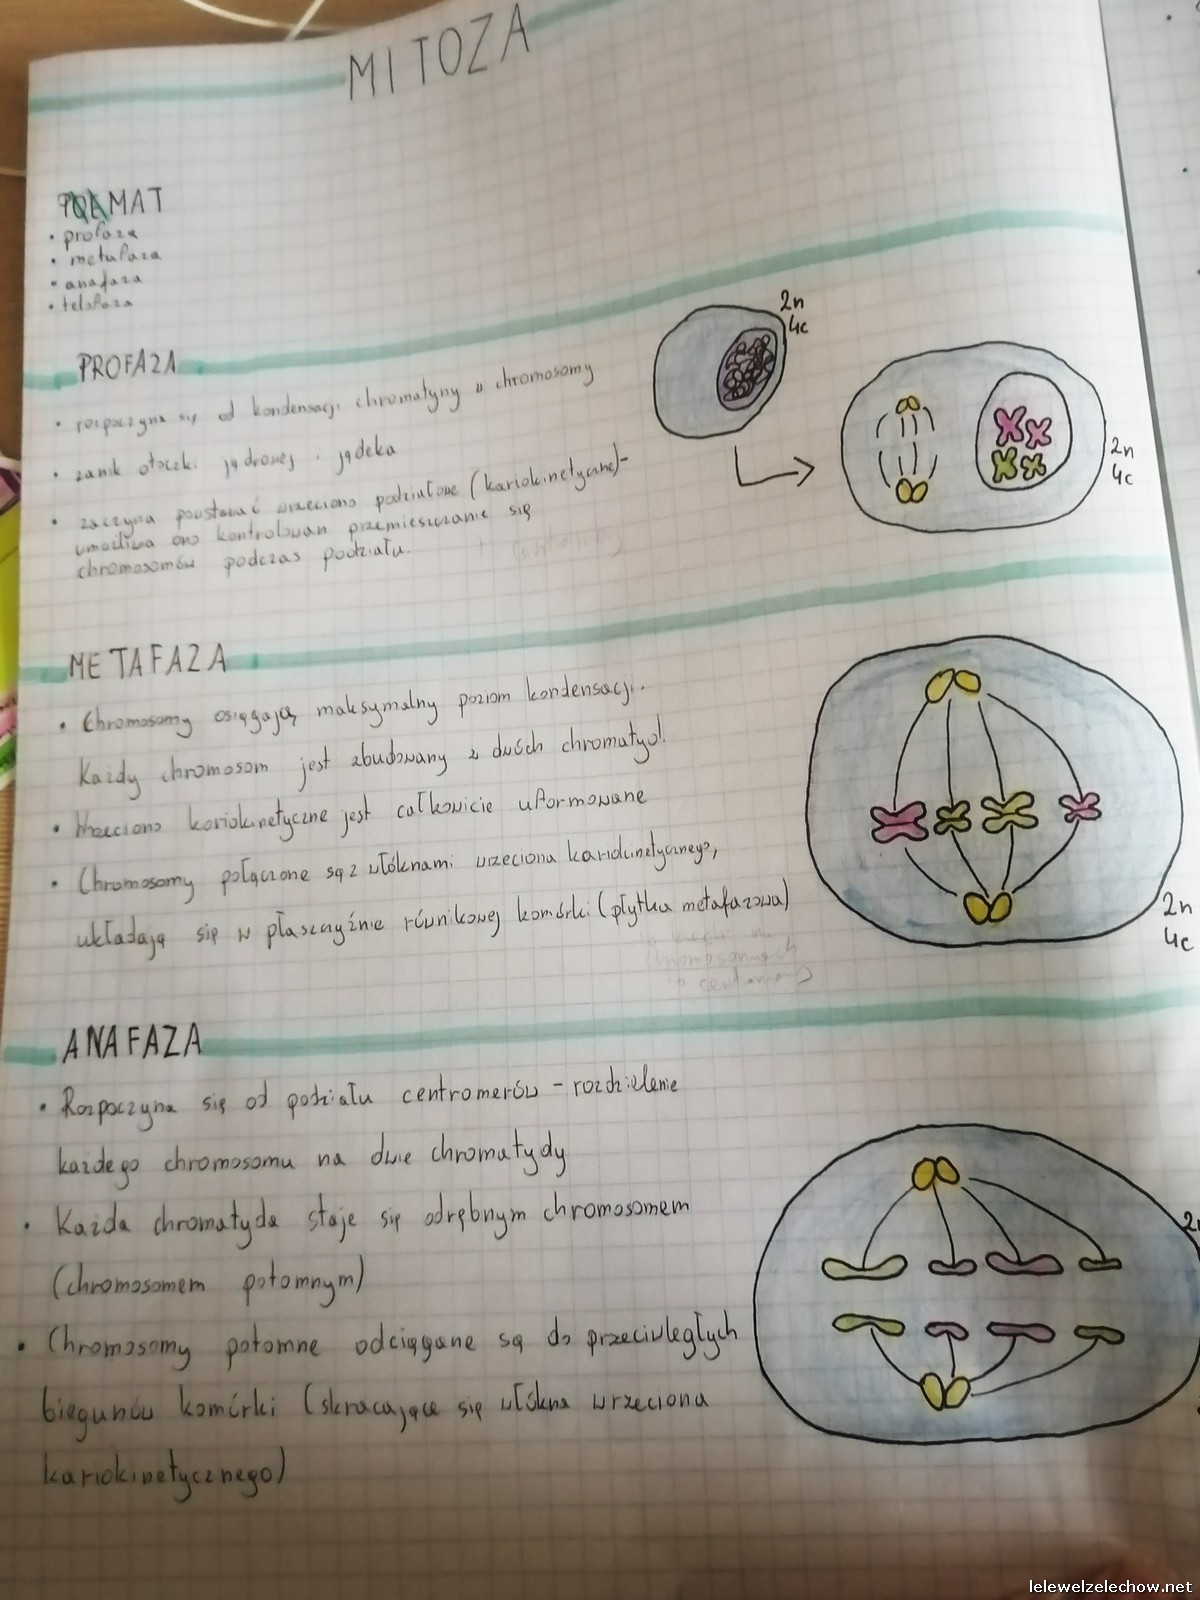 MITOZA
PMAT
• profaza
• metafaza
• anafaza
• telofaza
PROFAZA
• rozpoczyna się od kondensacji chromatyny w chromosomy
• zanik otoczki jądrowej i jąderka
• zaczyna powstawać wrzeciono podziałowe (kariokinetyczne)-
umożliwia ono kontrolowan przemieszczanie się
chromosomów podczas podziału.
2n
4c
2n
4c
METAFAZA
• Chromosomy osiągają maksymalny poziom kondensacji.
Każdy chromosom jest zbudowany z dwóch chromatyd.
• Wrzeciono kariokinetyczne jest całkowicie uformowane
• Chromosomy połączone są z włóknami wrzeciona kariokinetycznego,
układają się w płaszczyźnie równikowej komórki (płytka metafazowa)
2n
4c
ANAFAZA
• Rozpoczyna się od podziału centromerów - rozdzielenie
każdego chromosomu na dwie chromatydy
• Każda chromatyda staje się odrębnym chromosomem
(chromosomem potomnym)
• Chromosomy potomne odciągane są do przeciwległych
biegunów komórki (skracające się włókna wrzeciona
kariokinetycznego)
lelewelzelechow.net